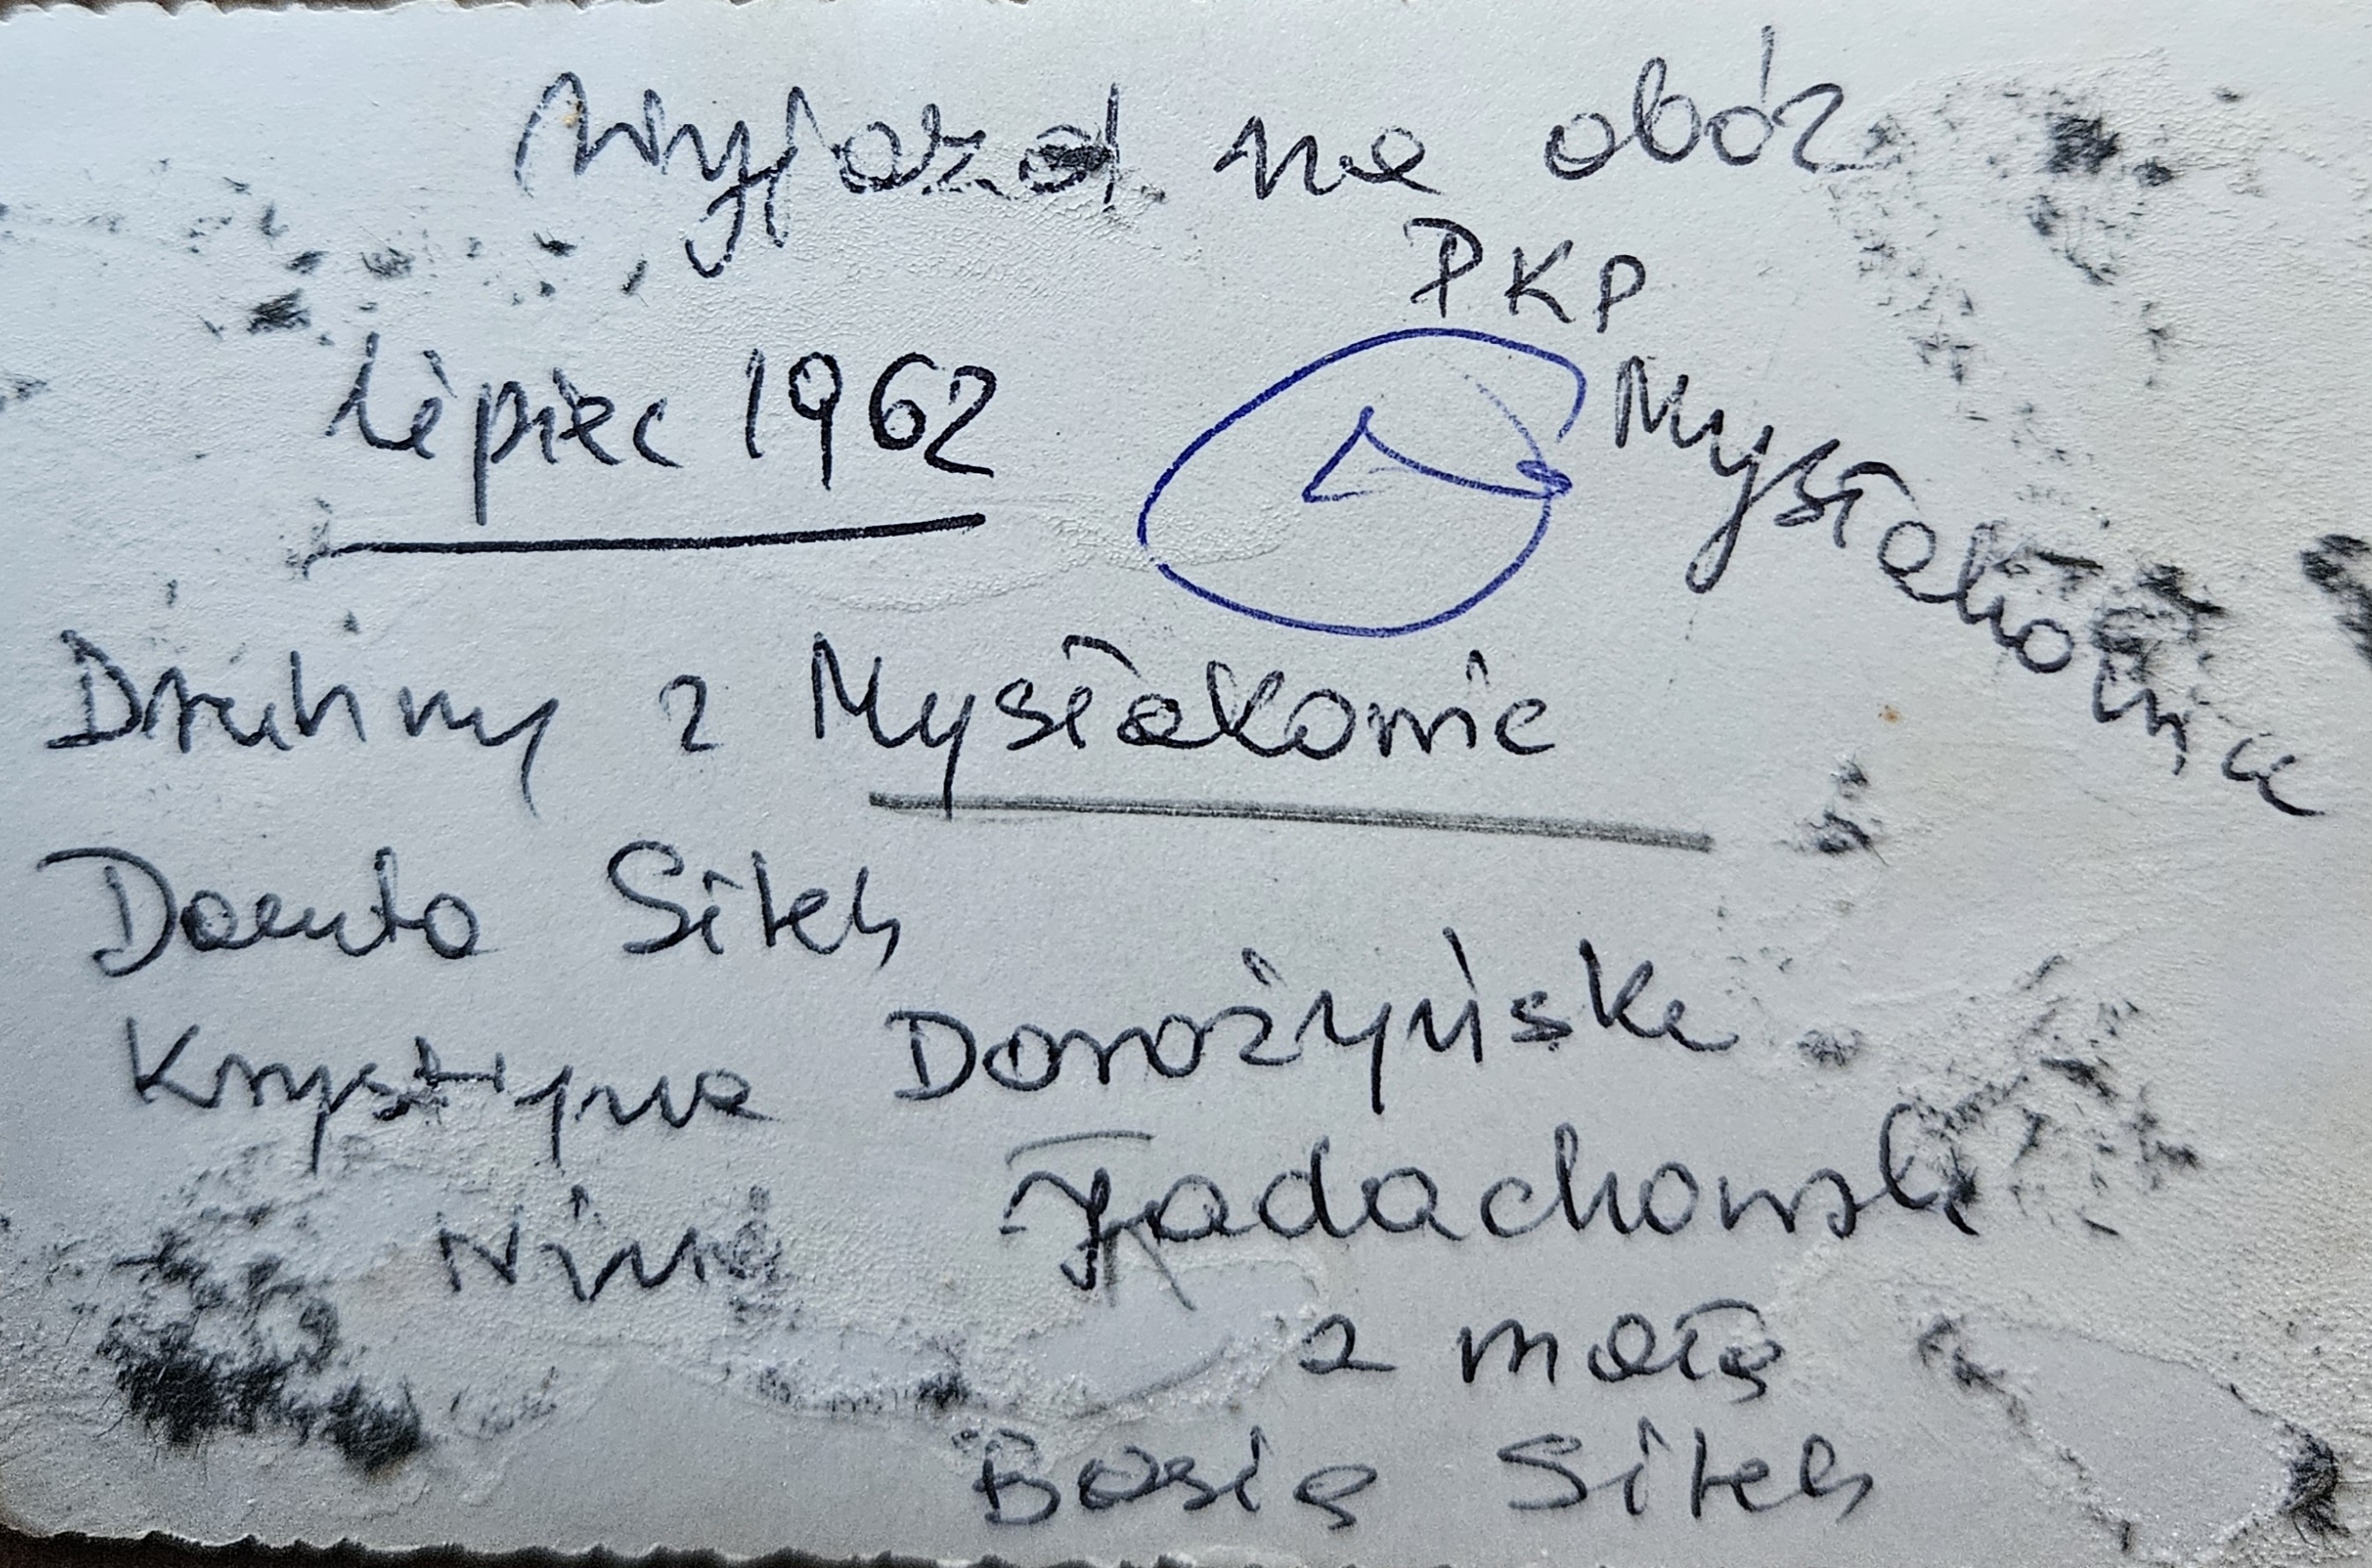 Wyjazd na obóz
PKP
Mysłakowice
lipiec 1962
Druhny z Mysłakowic
Danuta Sitek
Krystyna Dorożyńska
Nina Jadachowska
z małą
Basią Sitek